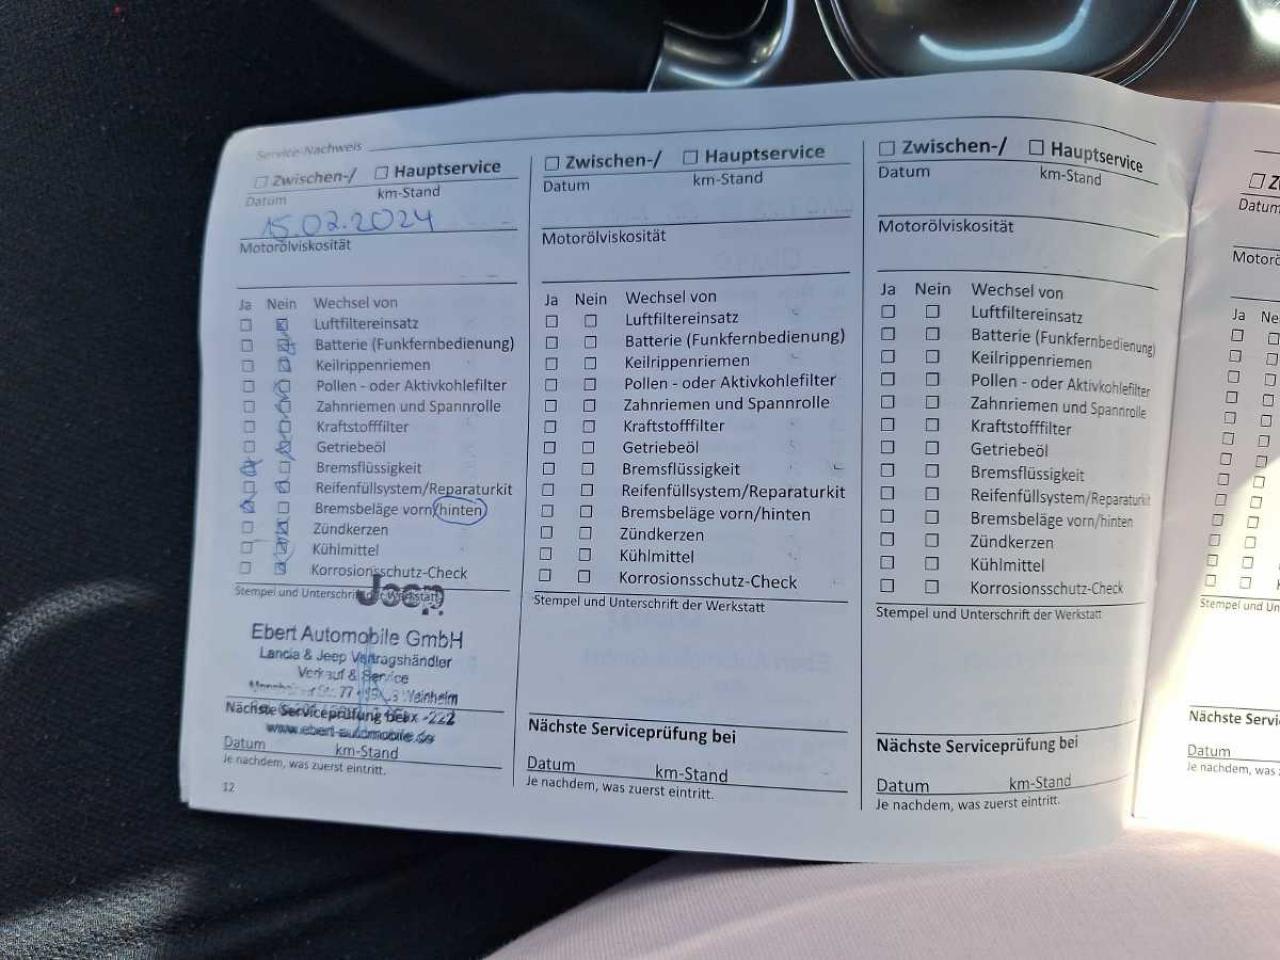 Service-Nachweis
☐ Zwischen-/ ☐ Hauptservice
Datum km-Stand
15.02.2024
Motorölviskosität
Ja Nein Wechsel von
☐ ☒ Luftfiltereinsatz
☐ ☒ Batterie (Funkfernbedienung)
☐ ☒ Keilrippenriemen
☐ ☒ Pollen - oder Aktivkohlefilter
☐ ☒ Zahnriemen und Spannrolle
☐ ☒ Kraftstofffilter
☐ ☒ Getriebeöl
☒ ☐ Bremsflüssigkeit
☐ ☒ Reifenfüllsystem/Reparaturkit
☒ ☐ Bremsbeläge vorn/hinten
☐ ☒ Zündkerzen
☐ ☒ Kühlmittel
☐ ☒ Korrosionsschutz-Check
Stempel und Unterschrift der Werkstatt
Jeep
Ebert Automobile GmbH
Lancia & Jeep Vertragshändler
Verkauf & Service
77 Weinheim
Nächste Serviceprüfung bei
-222
www.ebert-automobile.de
Datum km-Stand
Je nachdem, was zuerst eintritt.
12
☐ Zwischen-/ ☐ Hauptservice
Datum km-Stand
Motorölviskosität
Ja Nein Wechsel von
☐ ☐ Luftfiltereinsatz
☐ ☐ Batterie (Funkfernbedienung)
☐ ☐ Keilrippenriemen
☐ ☐ Pollen - oder Aktivkohlefilter
☐ ☐ Zahnriemen und Spannrolle
☐ ☐ Kraftstofffilter
☐ ☐ Getriebeöl
☐ ☐ Bremsflüssigkeit
☐ ☐ Reifenfüllsystem/Reparaturkit
☐ ☐ Bremsbeläge vorn/hinten
☐ ☐ Zündkerzen
☐ ☐ Kühlmittel
☐ ☐ Korrosionsschutz-Check
Stempel und Unterschrift der Werkstatt
Nächste Serviceprüfung bei
Datum km-Stand
Je nachdem, was zuerst eintritt.
☐ Zwischen-/ ☐ Hauptservice
Datum km-Stand
Motorölviskosität
Ja Nein Wechsel von
☐ ☐ Luftfiltereinsatz
☐ ☐ Batterie (Funkfernbedienung)
☐ ☐ Keilrippenriemen
☐ ☐ Pollen - oder Aktivkohlefilter
☐ ☐ Zahnriemen und Spannrolle
☐ ☐ Kraftstofffilter
☐ ☐ Getriebeöl
☐ ☐ Bremsflüssigkeit
☐ ☐ Reifenfüllsystem/Reparaturkit
☐ ☐ Bremsbeläge vorn/hinten
☐ ☐ Zündkerzen
☐ ☐ Kühlmittel
☐ ☐ Korrosionsschutz-Check
Stempel und Unterschrift der Werkstatt
Nächste Serviceprüfung bei
Datum km-Stand
Je nachdem, was zuerst eintritt.
☐ Z
Datum
Motorö
Ja Ne
Stempel und Un
Nächste Servi
Datum
Je nachdem, was z